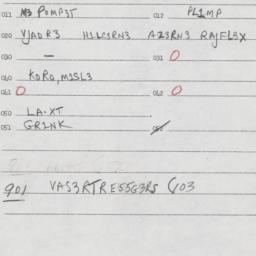 011 POMP3T 012 PL1MP
020 VJADR3 H1LCSRN3 AZ3RN3 RAJFL3X
030 — 031 O
040 KORO, M1SL3
041 O 042 O
050 LA-XT
051 GR1NK 052
901 VAS3RTRE55G3RS C103